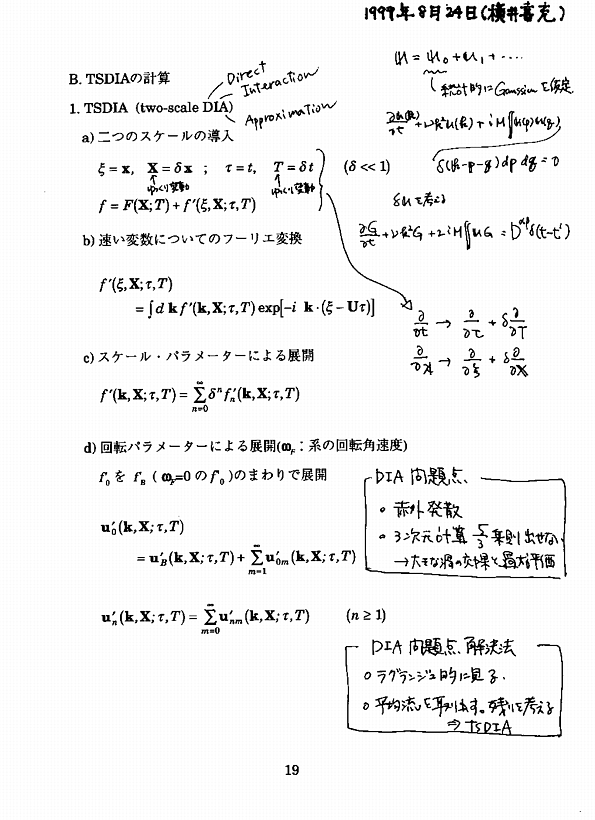 1999年8月24日(横井喜充)
B. TSDIAの計算
Direct
Interaction
Approximation
1. TSDIA (two-scale DIA)
a) 二つのスケールの導入
ξ = x, X = δx ; τ = t, T = δt (δ << 1)
ゆっくり変動 ゆっくり変動
f = F(X;T) + f'(ξ,X;τ,T)
b) 速い変数についてのフーリエ変換
f'(ξ,X;τ,T)
= ∫d k f'(k,X;τ,T) exp[−i k·(ξ − Uτ)]
c) スケール・パラメーターによる展開
f'(k,X;τ,T) = Σ_{n=0}^{∞} δⁿf'ₙ(k,X;τ,T)
d) 回転パラメーターによる展開(ω_F：系の回転角速度)
f'₀ を f'_B ( ω_F=0 の f'₀ )のまわりで展開
u'₀(k,X;τ,T)
= u'_B(k,X;τ,T) + Σ_{m=1}^{∞} u'₀ₘ(k,X;τ,T)
u'ₙ(k,X;τ,T) = Σ_{m=0}^{∞} u'ₙₘ(k,X;τ,T) (n ≥ 1)
u = u₀ + u₁ + ····
統計的にGaussianを仮定
∂u(k)/∂t + νk²u(k) + iM∬u(p)u(q)
δ(k−p−q)dp dq = 0
δuを考える
∂G/∂t + νk²G + 2iM∬uG = D^{αβ}δ(t−t')
∂/∂t → ∂/∂τ + δ∂/∂T
∂/∂x → ∂/∂ξ + δ∂/∂X
DIA 問題点
○ 赤外発散
○ 3次元計算 5/3 乗則出せない
→大きな渦の効果を過大評価
DIA 問題点、解決法
○ ラグランジュ的に見る。
○ 平均流を取り出す。残りを考える
⇒ TSDIA
19